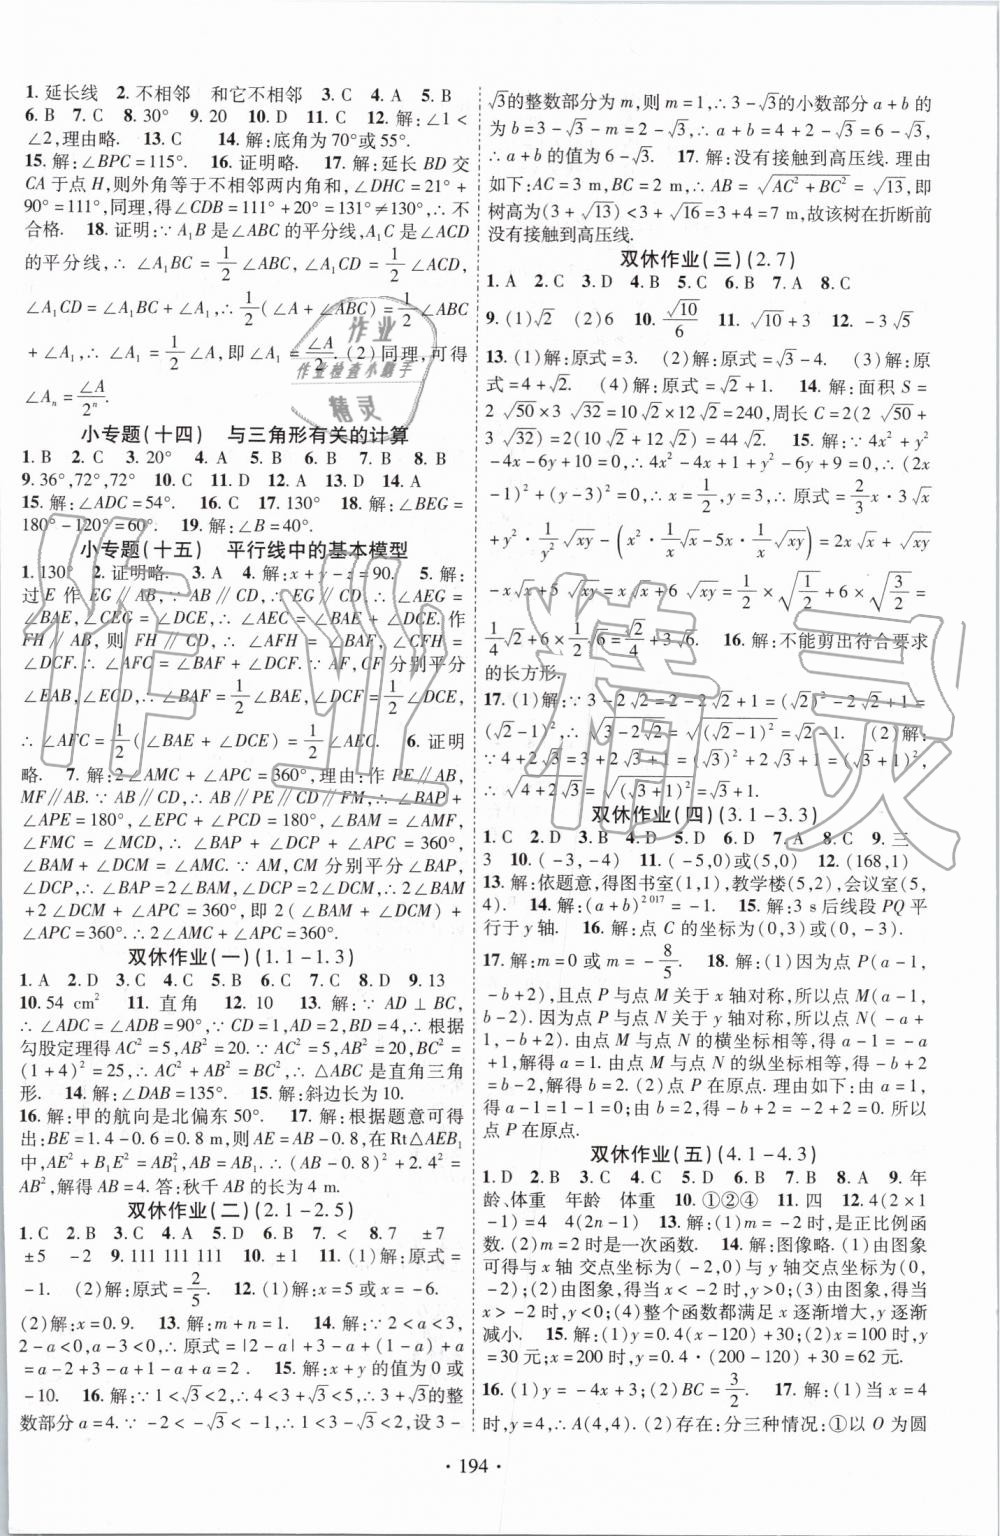 1. 延长线 2. 不相邻 和它不相邻 3. C 4. A 5. B
6. B 7. C 8. 30° 9. 20 10. D 11. C 12. 解:∠1<
∠2,理由略. 13. C 14. 解:底角为70°或55°.
15. 解:∠BPC=115°. 16. 证明略. 17. 解:延长 BD 交
CA 于点 H,则外角等于不相邻两内角和,∠DHC=21°+
90°=111°,同理,得∠CDB=111°+20°=131°≠130°,∴不
合格. 18. 证明:∵A₁B 是∠ABC 的平分线,A₁C 是∠ACD
的平分线,∴∠A₁BC=1/2∠ABC,∠A₁CD=1/2∠ACD,∵
∠A₁CD=∠A₁BC+∠A₁,∴1/2(∠A+∠ABC)=1/2∠ABC
+∠A₁,∴∠A₁=1/2∠A,即∠A₁=∠A/2. (2)同理,可得
∠Aₙ=∠A/2ⁿ.
小专题(十四) 与三角形有关的计算
1. B 2. C 3. 20° 4. A 5. B 6. B 7. B 8. B
9. 36°,72°,72° 10. C 11. D 12. A 13. D 14. A
15. 解:∠ADC=54°. 16. C 17. 130° 18. 解:∠BEG=
180°-120°=60°. 19. 解:∠B=40°.
小专题(十五) 平行线中的基本模型
1. 130° 2. 证明略. 3. A 4. 解:x+y-z=90. 5. 解:
过 E 作 EG∥AB,∵AB∥CD,∴EG∥CD,∴∠AEG=
∠BAE,∠CEG=∠DCE,∴∠AEC=∠BAE+∠DCE. 作
FH∥AB,则 FH∥CD,∴∠AFH=∠BAF,∠CFH=
∠DCF,∴∠AFC=∠BAF+∠DCF. ∵AF,CF 分别平分
∠EAB,∠ECD,∴∠BAF=1/2∠BAE,∠DCF=1/2∠DCE,
∴∠AFC=1/2(∠BAE+∠DCE)=1/2∠AEC. 6. 证明
略. 7. 解:2∠AMC+∠APC=360°,理由:作 PE∥AB,
MF∥AB. ∵AB∥CD,∴AB∥PE∥CD∥FM,∴∠BAP+
∠APE=180°,∠EPC+∠PCD=180°,∠BAM=∠AMF,
∠FMC=∠MCD,∴∠BAP+∠DCP+∠APC=360°,
∠BAM+∠DCM=∠AMC. ∵AM,CM 分别平分∠BAP,
∠DCP,∴∠BAP=2∠BAM,∠DCP=2∠DCM,∴2∠BAM
+2∠DCM+∠APC=360°,即 2(∠BAM+∠DCM)+
∠APC=360°. ∴2∠AMC+∠APC=360°.
双休作业(一)(1.1-1.3)
1. A 2. D 3. C 4. C 5. B 6. C 7. C 8. D 9. 13
10. 54 cm² 11. 直角 12. 10 13. 解:∵AD⊥BC,
∴∠ADC=∠ADB=90°,∵CD=1,AD=2,BD=4,∴根据
勾股定理得 AC²=5,AB²=20. ∵AC²=5,AB²=20,BC²=
(1+4)²=25,∴AC²+AB²=BC²,∴△ABC 是直角三角
形. 14. 解:∠DAB=135°. 15. 解:斜边长为10.
16. 解:甲的航向是北偏东50°. 17. 解:根据题意可得
出:BE=1.4-0.6=0.8 m,则 AE=AB-0.8,在Rt△AEB₁
中,AE²+B₁E²=AB₁²,∵AB₁=AB,∴(AB-0.8)²+2.4²=
AB²,解得:AB=4. 答:秋千 AB 的长为4 m.
双休作业(二)(2.1-2.5)
1. C 2. D 3. C 4. A 5. D 6. B 7. < 8. 7 ±7
±5 -2 9. 111 111 111 10. ±1 11. (1)解:原式=
-1. (2)解:原式=2/5. 12. (1)解:x=5或x=-6.
(2)解:x=0.9. 13. 解:m+n=1. 14. 解:∵2<a<3,
2-a<0,a-3<0,∴原式=|2-a|+3-a+(1-a)=
a-2+3-a+1-a+a=2. 15. 解:x+y 的值为0或
-10. 16. 解:∵1<√3<2,∴4<3+√3<5,∴3+√3的整
数部分 a=4. ∵-2<-√3<-1,∴1<3-√3<2,设 3-
√3的整数部分为 m,则 m=1,∴3-√3的小数部分 a+b的
为 b=3-√3-m=2-√3,∴a+b=4+2-√3=6-√3,
∴a+b 的值为6-√3. 17. 解:没有接触到高压线. 理由
如下:AC=3 m,BC=2 m,∴AB=√(AC²+BC²)=√13,即
树高为(3+√13)<3+√16=3+4=7 m,故该树在折断前
没有接触到高压线.
双休作业(三)(2.7)
1. A 2. C 3. D 4. B 5. C 6. B 7. A 8. C
9. (1)√2 (2)6 10. √10/6 11. √10+3 12. -3√5
13. (1)解:原式=3. (2)解:原式=√3-4. (3)解:原
式=4+√2. (4)解:原式=√2+1. 14. 解:面积 S=
2√50×3√32=10√2×12√2=240,周长 C=2(2√50+
3√32)=2(10√2+12√2)=44√2. 15. 解:∵4x²+y²
-4x-6y+10=0,∴4x²-4x+1+y²-6y+9=0,∴(2x
-1)²+(y-3)²=0,∴x=1/2,y=3,∴原式=2/3x·3√x
+y²·1/y²√xy-(x²·1/x√x-5x·1/x√xy)=2x√x+√xy
-x√x+5√xy=x√x+6√xy=1/2×√(1/2)+6×√(3/2)=
1/4√2+6×1/2√6=√2/4+3√6. 16. 解:不能剪出符合要求
的长方形.
17. (1)解:∵3-2√2=2-2√2+1=(√2)²-2√2+1=
(√2-1)²,∴√(3-2√2)=√((√2-1)²)=√2-1. (2)解:
∵4+2√3=3+2√3+1=(√3)²+2√3+1=(√3+1)²,
∴√(4+2√3)=√((√3+1)²)=√3+1.
双休作业(四)(3.1-3.3)
1. C 2. D 3. B 4. D 5. D 6. D 7. A 8. C 9. 三
3 10. (-3,-4) 11. (-5,0)或(5,0) 12. (168,1)
13. 解:依题意,得图书室(1,1),教学楼(5,2),会议室(5,
4). 14. 解:(a+b)²⁰¹⁷=-1. 15. 解:3 s后线段 PQ 平
行于y轴. 16. 解:点 C 的坐标为(0,3)或(0,-3).
17. 解:m=0或m=-8/5. 18. 解:(1)因为点 P(a-1,
-b+2),且点 P 与点 M 关于 x 轴对称,所以点 M(a-1,
b-2). 因为点 P 与点 N 关于 y 轴对称,所以点 N(-a+
1,-b+2). 由点 M 与点 N 的横坐标相等,得 a-1=-a
+1,解得 a=1. 由点 M 与点 N 的纵坐标相等,得 -b+2
=b-2,解得 b=2. (2)点 P 在原点. 理由如下:由 a=1,
得 a-1=1-1=0;由 b=2,得 -b+2=-2+2=0. 所以
点 P 在原点.
双休作业(五)(4.1-4.3)
1. D 2. B 3. C 4. C 5. D 6. C 7. B 8. A 9. 年
龄、体重 年龄 体重 10. ①②④ 11. 四 12. 4(2×1
-1)=4 4(2n-1) 13. 解:(1)m=-2时,是正比例函
数. (2)m=2时是一次函数. 14. 解:图像略. (1)由图象
可得与 x 轴 交点坐标为(-2,0)与 y轴交点坐标为(0,
-2);(2)由图象,得当 x<-2时,y>0;(3)由图象,得当
x>-2时,y<0;(4)整个函数都满足 x 逐渐增大,y 逐渐
减小. 15. 解:(1)y=0.4(x-120)+30;(2)x=100时,y
=30元;x=200时,y=0.4×(200-120)+30=62元.
16. (1)y=-4x+3;(2)BC=3/2. 17. 解:(1)当 x=4
时,y=4,∴A(4,4). (2)存在:分三种情况:①以 O 为圆
· 194 ·
作业
作业检查小助手
精灵
作业精灵